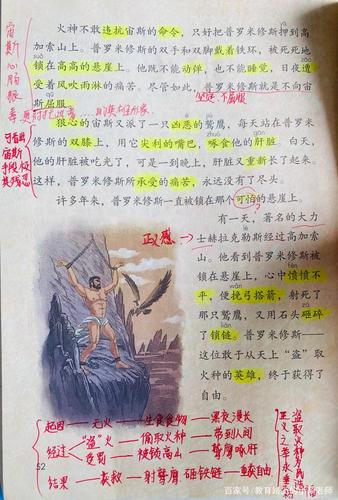 火神不敢违抗宙斯的命令，只好把普罗米修斯押到高
加索山上。普罗米修斯的双手和双脚戴着铁环，被死死地
锁在高高的悬崖上。他既不能动弹，也不能睡觉，日夜遭
受着风吹雨淋的痛苦。尽管如此，普罗米修斯就是不向宙
斯屈服。
坚定 不屈服
狠心的宙斯又派了一只凶恶的鹫鹰，每天站在普罗米
修斯的双膝上，用它尖利的嘴巴，啄食他的肝脏。白天，
他的肝脏被吃光了，可是一到晚上，肝脏又重新长了起来。
这样，普罗米修斯所承受的痛苦，永远没有了尽头。
许多年来，普罗米修斯一直被锁在那个可怕的悬崖上。
有一天，著名的大力
士赫拉克勒斯经过高加索
山。他看到普罗米修斯被
锁在悬崖上，心中愤愤不
平，便挽弓搭箭，射死了
那只鹫鹰，又用石头砸碎
了锁链。普罗米修斯——
这位敢于从天上“盗”取
火种的英雄，终于获得了
自由。
宙斯心肠狠毒
可看出宙斯手段极其残忍
正义感
起因——无火——生食食物——黑夜漫长
经过 “盗”火——偷取火种——带到人间
受罚——被锁高山——鹫鹰啄肝
结果——获救——射鹫鹰 砸铁链——获自由
52
百家号/教育
老师